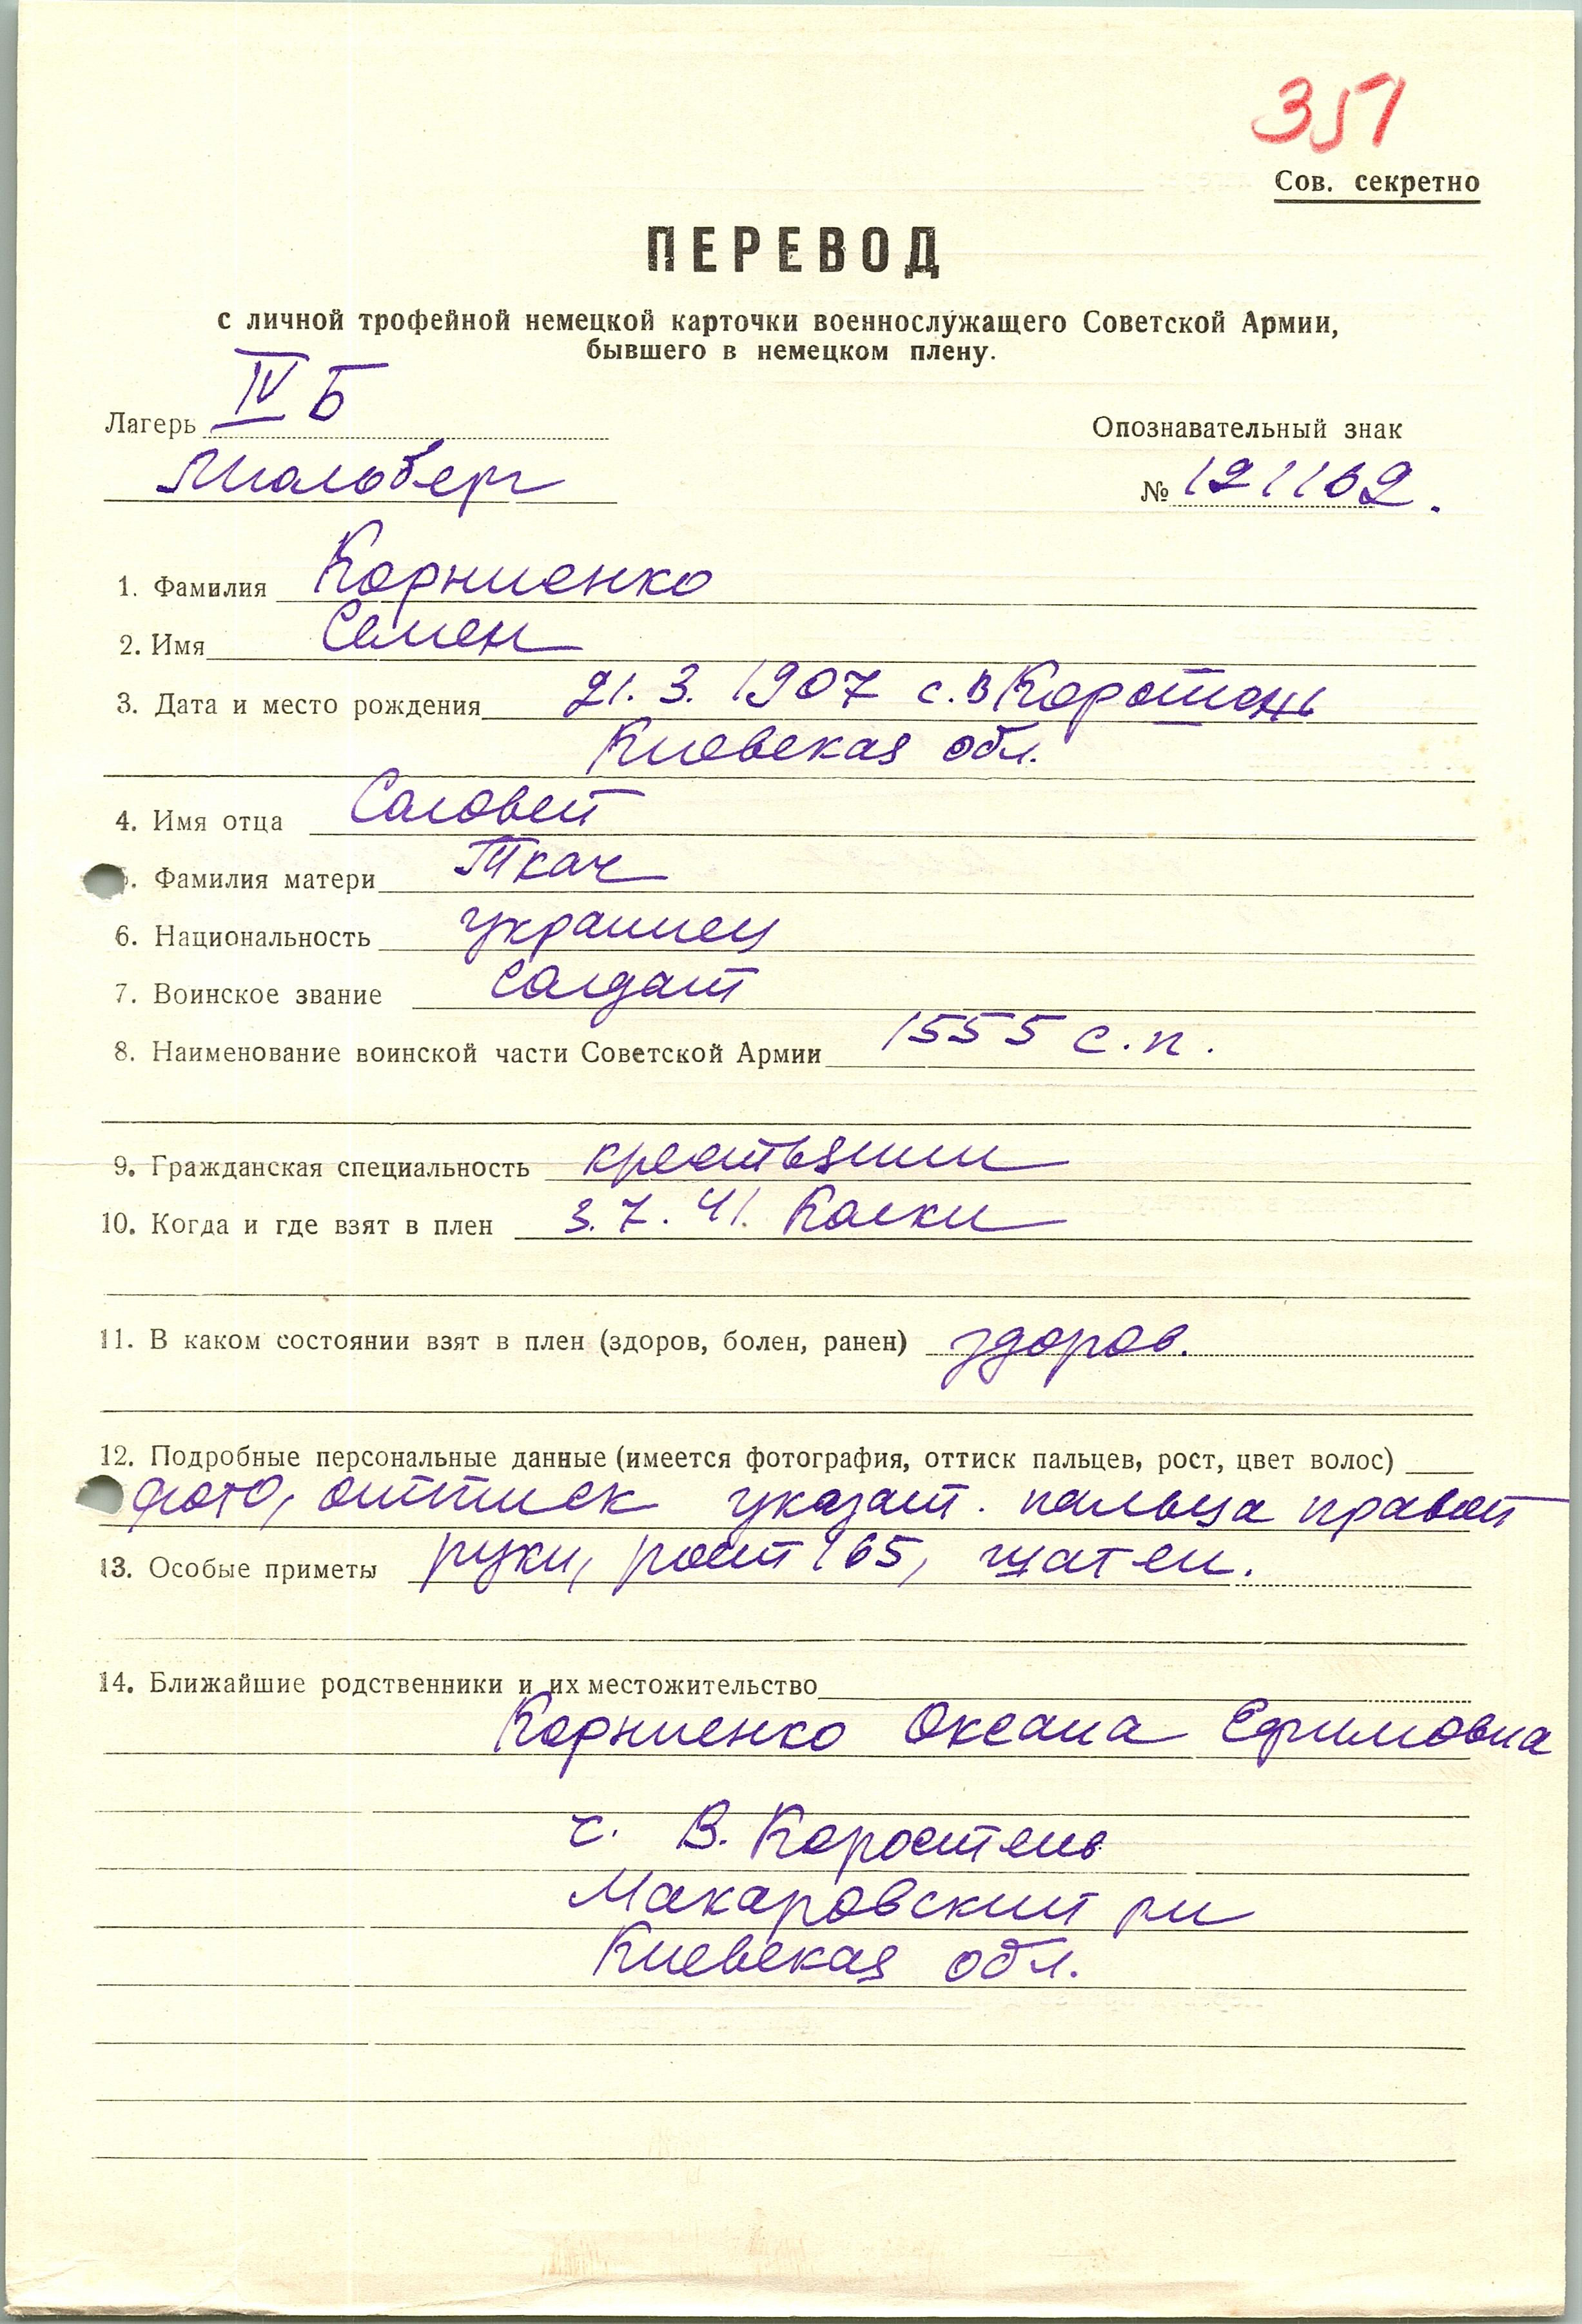 351
Сов. секретно
ПЕРЕВОД
с личной трофейной немецкой карточки военнослужащего Советской Армии,
бывшего в немецком плену.
Лагерь IV Б
Мюльберг
Опознавательный знак
№ 121162.
1. Фамилия Корниенко
2. Имя Семен
3. Дата и место рождения 21. 3. 1907 с. В
Киевская обл.
4. Имя отца Саловей
5. Фамилия матери Ткач
6. Национальность украинец
7. Воинское звание солдат
8. Наименование воинской части Советской Армии 1555 с.п.
9. Гражданская специальность крестьянин
10. Когда и где взят в плен 3. 7. 41. Колки
11. В каком состоянии взят в плен (здоров, болен, ранен) здоров.
12. Подробные персональные данные (имеется фотография, оттиск пальцев, рост, цвет волос)
фото, оттиск указат. пальца правой
13. Особые приметы руки, рост 165, шатен.
14. Ближайшие родственники и их местожительство
Корниенко Оксана Ефимовна
с. В. Коростень
Макаровский рн
Киевская обл.